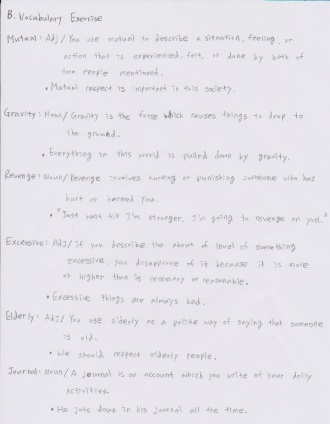 B. Vocabulary Exercise
Mutual: Adj/ You use mutual to describe a situation, feeling, or
action that is experienced, felt, or done by both of
two people mentioned.
• Mutual respect is important in this society.
Gravity: Noun/ Gravity is the force which causes things to drop to
the ground.
• Everything in this world is pulled down by gravity.
Revenge: Noun/ Revenge involves hurting or punishing someone who has
hurt or harmed you.
• "Just wait till I'm stronger, I'm going to revenge on you."
Excessive: Adj/ If you describe the about of level of something
excessive, you disapprove of it because it is more
or higher than is necessary or reasonable.
• Excessive things are always bad.
Elderly: Adj/ You use elderly as a polite way of saying that someone
is old.
• We should respect elderly people.
Journal: Noun/ A journal is an account which you write of your daily
activities.
• He jots down in his journal all the time.